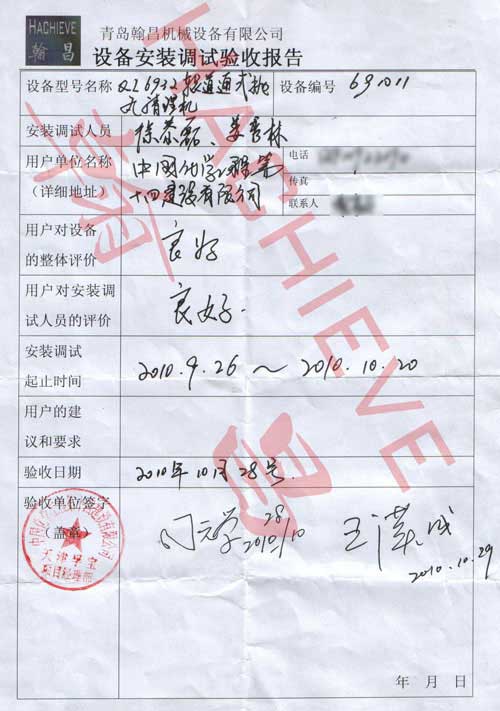 HACHIEVE
翰昌
青岛翰昌机械设备有限公司
设备安装调试验收报告
设备型号名称 Q26932辊道通式抛
丸清理机
设备编号 691011
安装调试人员 徐恭磊、姜青林
用户单位名称 中国化学工程第
(详细地址) 十四建设有限公司
电话
传真
联系人
用户对设备
的整体评价
良好
用户对安装调
试人员的评价
良好.
安装调试
起止时间
2010.9.26 ~ 2010.10.20
用户的建
议和要求
验收日期 2010年10月28号.
验收单位签字
(盖章)
28
2010/10
2010.10.29
项目经理部
年 月 日
HACHIEVE
翰
昌